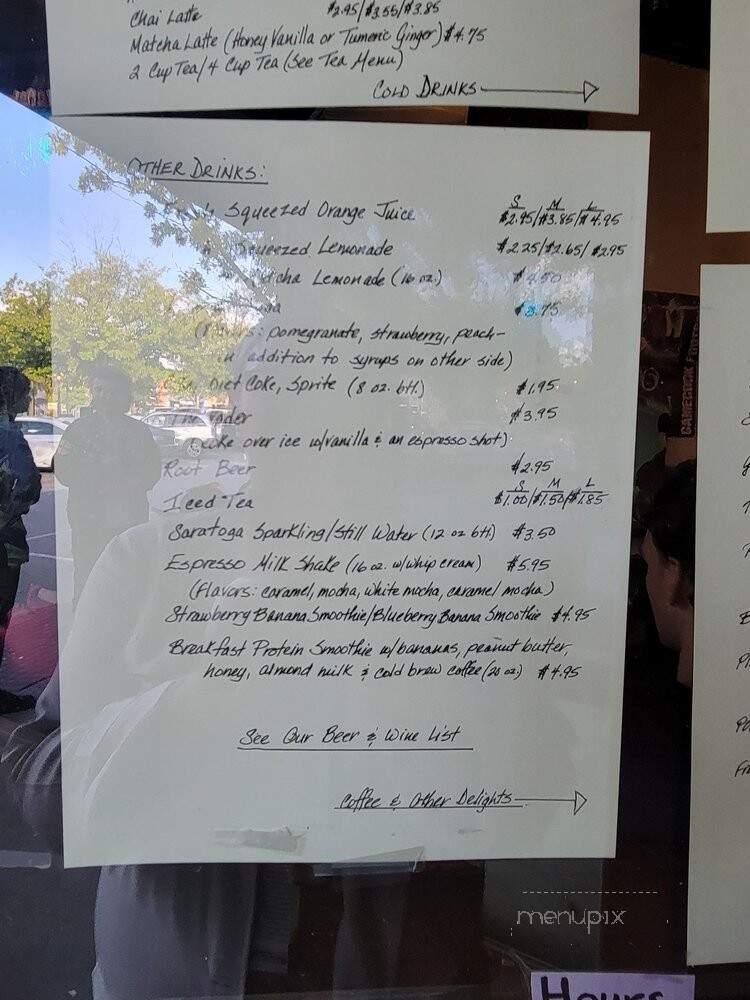 Chai Latte $2.95/$3.55/$3.85
Matcha Latte (Honey Vanilla or Tumeric Ginger) $4.75
2 Cup Tea/4 Cup Tea (See Tea Menu)
COLD DRINKS
OTHER DRINKS:
S M L
Squeezed Orange Juice $2.95/$3.85/$4.95
Squeezed Lemonade $2.25/$2.65/$2.95
Lemonade (16 oz.) $4.50
$3.75
pomegranate, strawberry, peach-
in addition to syrups on other side)
Diet Coke, Sprite (8 oz. btl.) $1.95
$3.95
(Coke over ice w/vanilla & an espresso shot)
Root Beer $2.95
S M L
Iced Tea $1.00/$1.50/$1.85
Saratoga Sparkling/Still Water (12 oz btl) $3.50
Espresso Milk Shake (16 oz. w/whip cream) $5.95
(Flavors: caramel, mocha, white mocha, caramel mocha)
Strawberry Banana Smoothie/Blueberry Banana Smoothie $4.95
Breakfast Protein Smoothie w/bananas, peanut butter,
honey, almond milk & cold brew coffee (20 oz) $4.95
See Our Beer & Wine List
Coffee & Other Delights
GAMECOCK
menupix
Hours